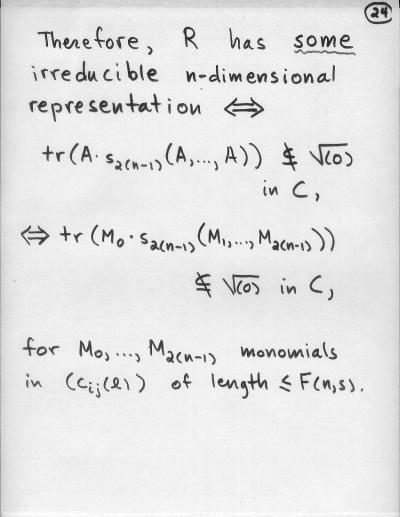 24
Therefore, R has some
irreducible n-dimensional
representation ⟺
tr(A · s₂₍ₙ₋₁₎(A,..., A)) ⊈ √(0)
in C,
⟺ tr(M₀ · s₂₍ₙ₋₁₎(M₁,..., M₂₍ₙ₋₁₎))
⊈ √(0) in C,
for M₀,..., M₂₍ₙ₋₁₎ monomials
in (cᵢⱼ(ℓ)) of length ≤ F(n,s).